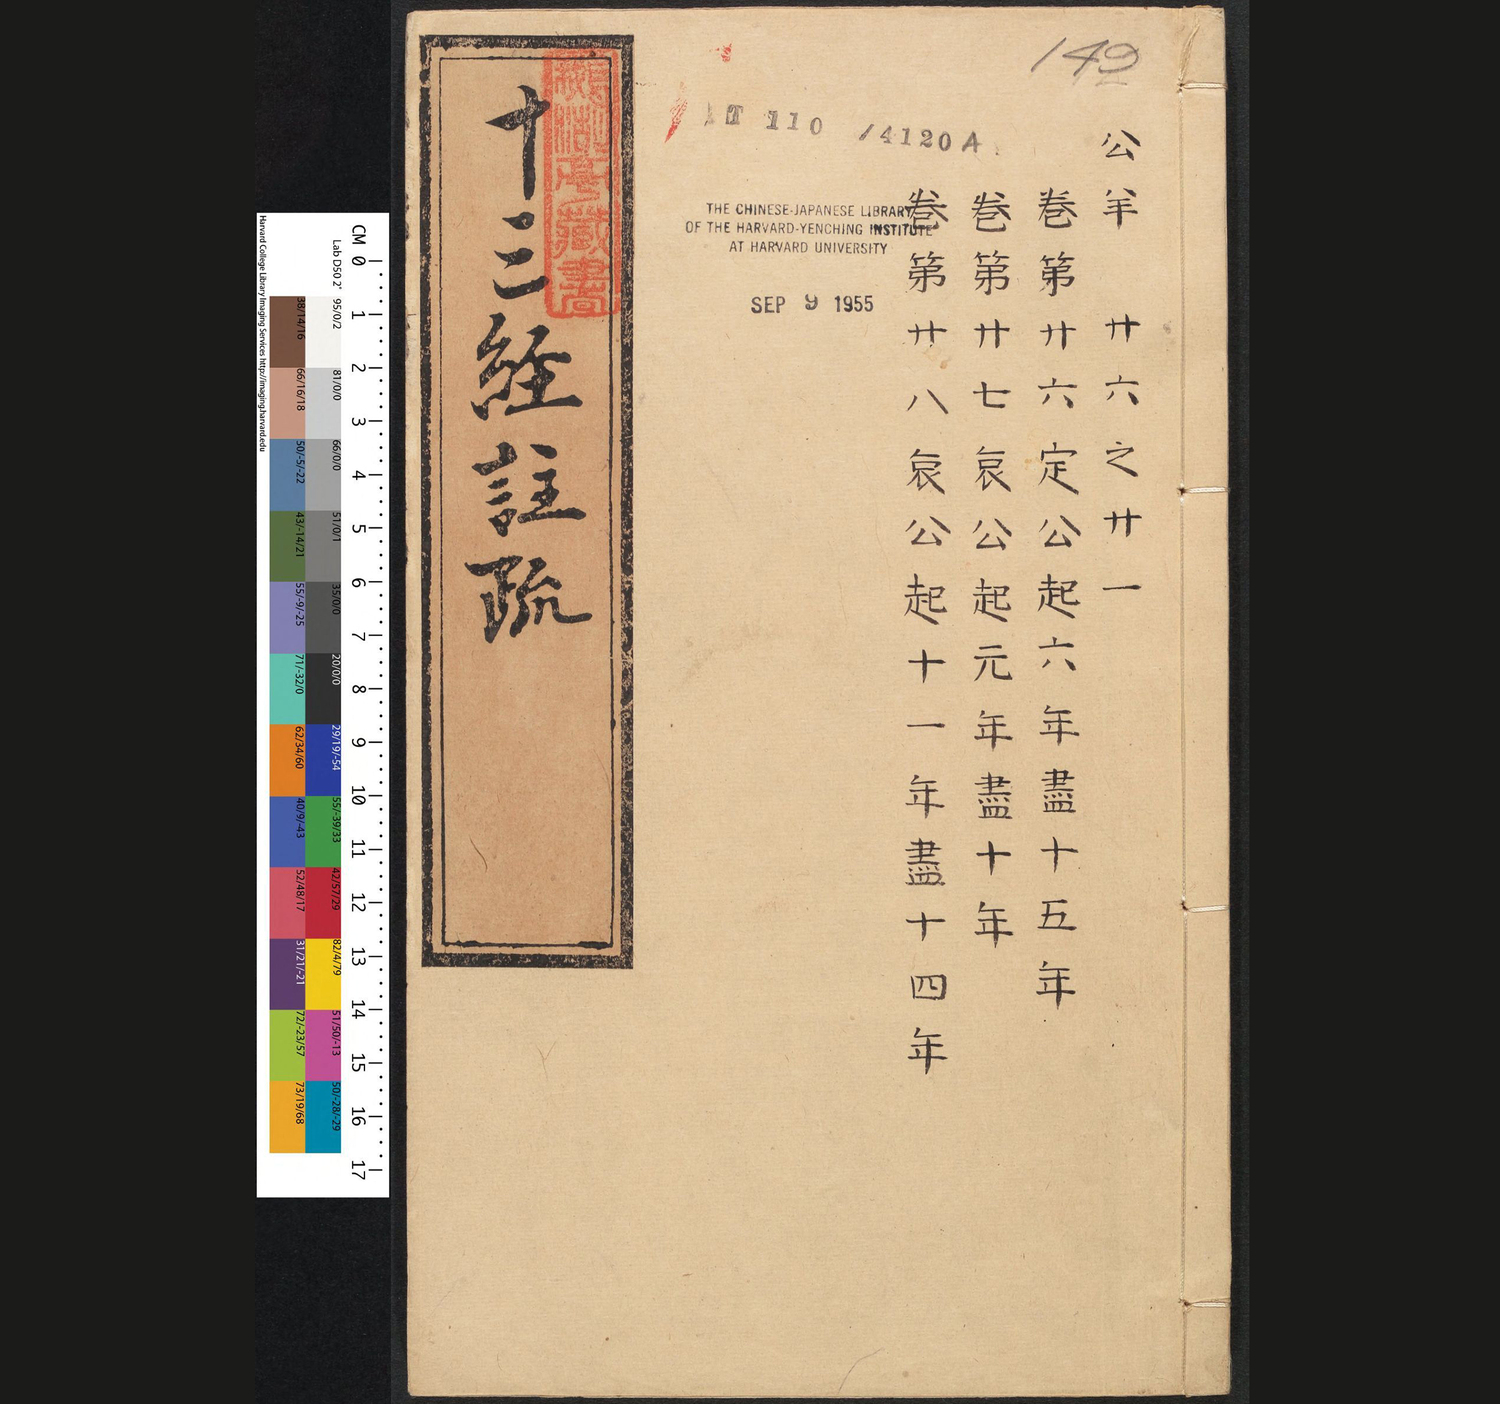 149
公羊 廿六之廿一
卷第廿六 定公起六年盡十五年
卷第廿七 哀公起元年盡十年
卷第廿八 哀公起十一年盡十四年
T 110 /4120A
THE CHINESE-JAPANESE LIBRARY
OF THE HARVARD-YENCHING INSTITUTE
AT HARVARD UNIVERSITY
SEP 9 1955
十三經註疏
藏書
CM 0 1 2 3 4 5 6 7 8 9 10 11 12 13 14 15 16 17
Lab D50 2°
95/0/2
81/0/0
66/0/0
51/0/1
35/0/0
20/0/0
29/19/-54
55/-39/33
42/57/29
82/4/79
51/50/-13
50/-28/-29
38/14/16
66/16/18
50/-5/-22
43/-14/21
55/-9/-25
71/-32/0
62/34/60
40/9/-43
52/48/17
31/21/-21
72/-23/57
73/19/68
Harvard College Library Imaging Services http://imaging.harvard.edu